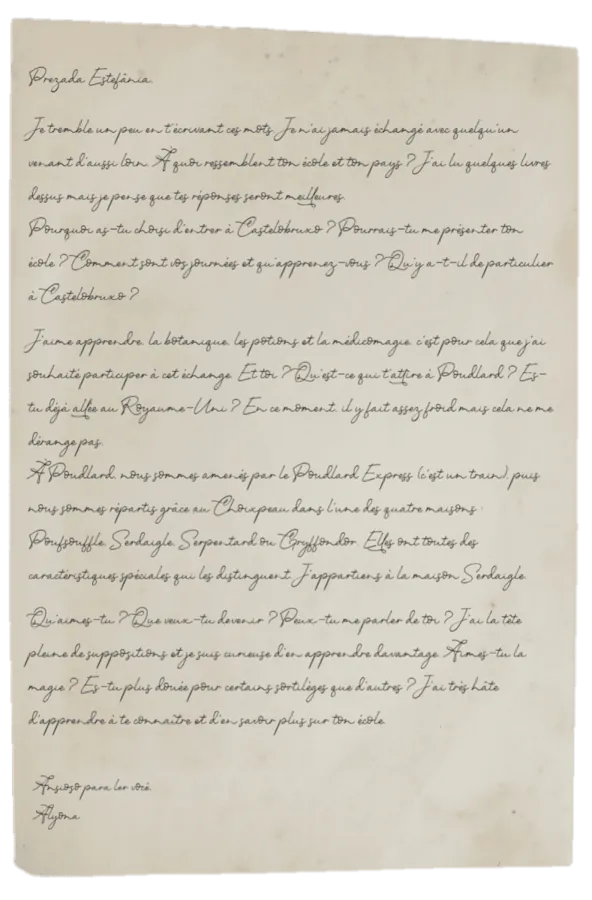 Prezada Estefânia,
Je tremble un peu en t'écrivant ces mots. Je n'ai jamais échangé avec quelqu'un
venant d'aussi loin. À quoi ressemblent ton école et ton pays ? J'ai lu quelques livres
dessus mais je pense que tes réponses seront meilleures.
Pourquoi as-tu choisi d'entrer à Castelobruxo ? Pourrais-tu me présenter ton
école ? Comment sont vos journées et qu'apprenez-vous ? Qu'y a-t-il de particulier
à Castelobruxo ?
J'aime apprendre, la botanique, les potions et la médicomagie, c'est pour cela que j'ai
souhaité participer à cet échange. Et toi ? Qu'est-ce qui t'attire à Poudlard ? Es-
tu déjà allée au Royaume-Uni ? En ce moment, il y fait assez froid mais cela ne me
dérange pas.
À Poudlard, nous sommes amenés par le Poudlard Express (c'est un train), puis
nous sommes répartis grâce au Choixpeau dans l'une des quatre maisons :
Poufsouffle, Serdaigle, Serpentard ou Gryffondor. Elles ont toutes des
caractéristiques spéciales qui les distinguent. J'appartiens à la maison Serdaigle.
Qu'aimes-tu ? Que veux-tu devenir ? Peux-tu me parler de toi ? J'ai la tête
pleine de suppositions et je suis curieuse d'en apprendre davantage. Aimes-tu la
magie ? Es-tu plus douée pour certains sortilèges que d'autres ? J'ai très hâte
d'apprendre à te connaître et d'en savoir plus sur ton école.
Ansioso para ler você,
Alyona